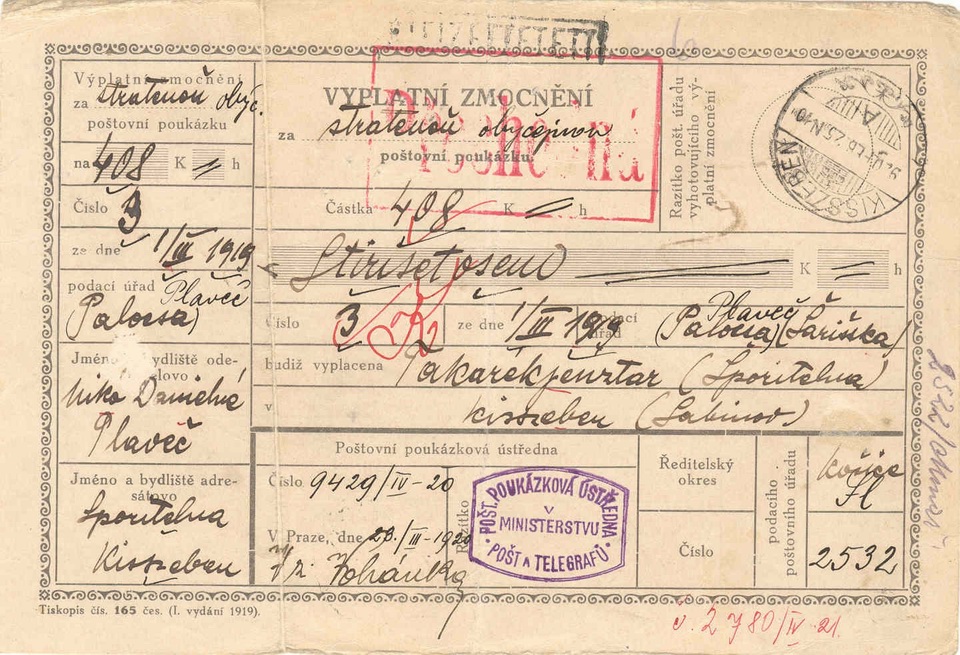 Výplatní zmocnění
za stratenou obyč.
poštovní poukázku
na 408 K = h
Číslo 3
ze dne 1/III 1919
podací úřad Plaveč
(Palocsa)
Jméno bydliště ode-
Plaveč
Jméno a bydliště adre-
sátovo
Sporitelna
Kisszeben
VÝPLATNÍ ZMOCNĚNÍ
za stratenou obyčejnou
poštovní poukázku.
Částka 408 K = h
Štirišetosem K = h
Číslo 3 ze dne 1/III 1919 podací úřad Plaveč (Palocsa) (Šarišska)
budiž vyplacena Takarékpénztar (Sporitelna)
v Kisszeben (Sabinov)
Razítko pošt. úřadu
vyhotovujícího vý-
platní zmocnění
KISSZEBEN
Poštovní poukázková ústředna
Číslo 9429/IV-20
V Praze, dne 23/III-1920
Razítko
POŠT. POUKÁZKOVÁ ÚSTŘEDNA
V
MINISTERSTVU
POŠT A TELEGRAFŮ
Ředitelský
okres
Číslo
podacího
poštovního úřadu
Košice
2532
Tiskopis čís. 165 čes. (I. vydání 1919).
č. 2780/IV-21.